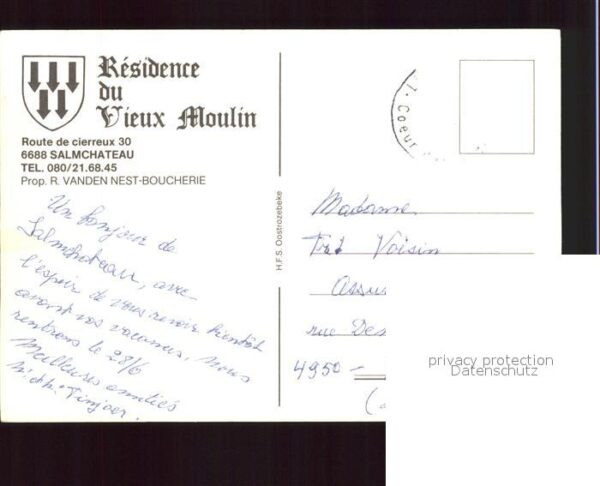 Résidence
du
Vieux Moulin
Route de cierreux 30
6688 SALMCHATEAU
TEL. 080/21.68.45
Prop. R. VANDEN NEST-BOUCHERIE
Un bonjour de
Salmchateau, avec
l'espoir de vous revoir bientôt
avant vos vacances, Nous
rentrons le 28/6
Meilleures amitiés
H.F.S. Oostrozebeke
Coeur
Madame
Voisin
Assu
rue Des
4950 -
privacy protection
Datenschutz